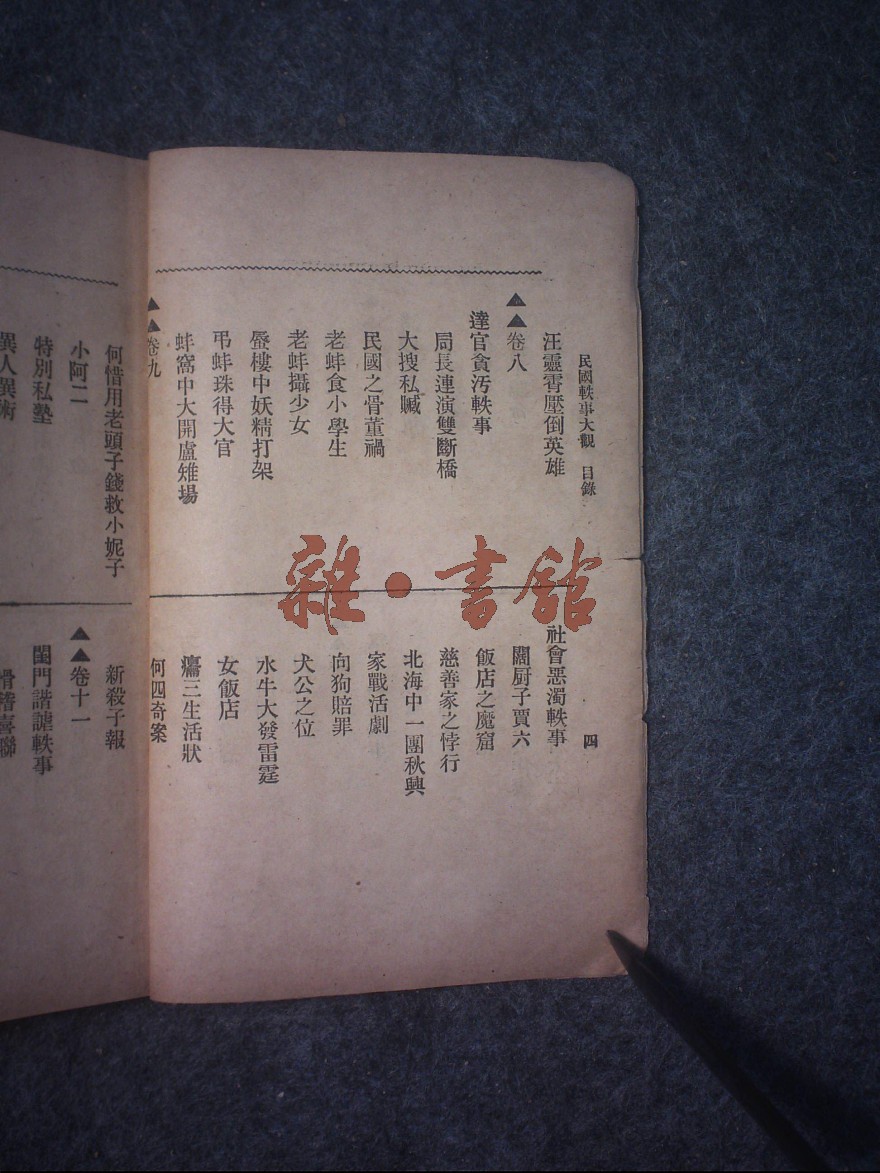 民國軼事大觀 目錄 四
汪靈霄壓倒英雄
▲▲卷八
達官貪汚軼事
局長連演雙斷橋
大搜私贓
民國之骨董禍
老蚌食小學生
老蚌攝少女
蜃樓中妖精打架
弔蚌珠得大官
蚌窩中大開盧雉場
▲▲卷九
社會惡濁軼事
闊厨子賈六
飯店之魔窟
慈善家之悖行
北海中一團秋興
家戰活劇
向狗賠罪
犬公之位
水牛大發雷霆
女飯店
癟三生活狀
何四奇案
何惜用老頭子錢救小妮子
小阿二
特別私塾
異人異術
新殺子報
▲▲卷十一
閨門諧謔軼事
滑稽喜聯
雜·書館